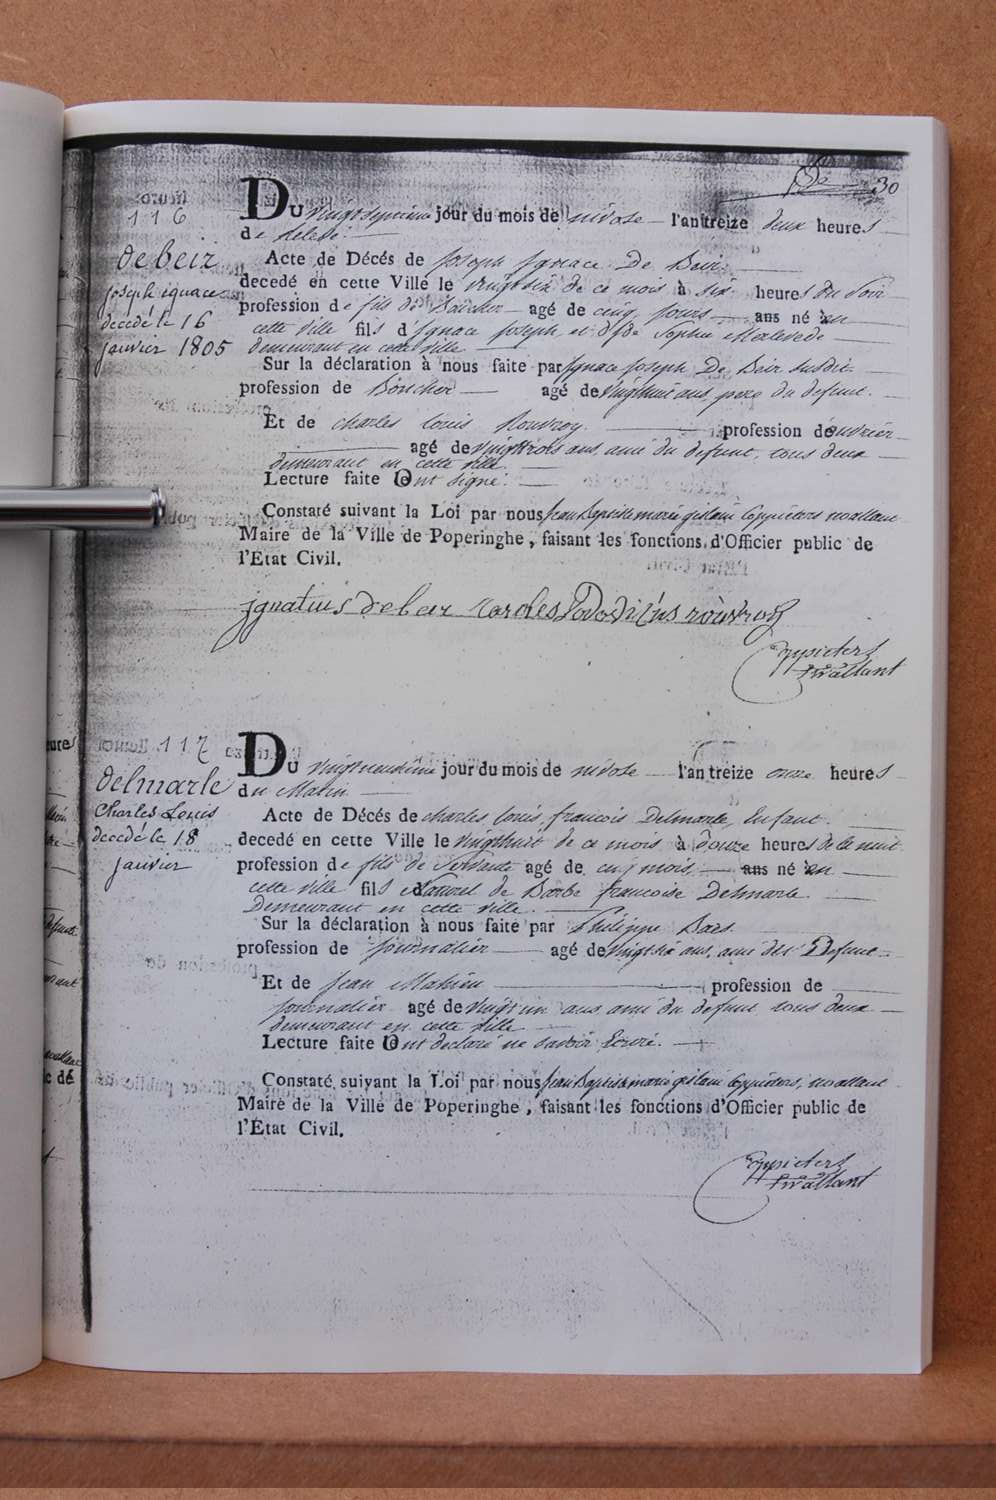 30
116
debeir
joseph ignace
decédé le 16
janvier 1805
Du vingtseptieme jour du mois de nivose l'an treize deux heures
de relevé.
Acte de Décés de Joseph Ignace De Beir
decedé en cette Ville le vingtsix de ce mois à six heures du Soir
profession de fils de Boucher agé de cinq jours ans né en
cette ville fils d'Ignace Joseph et de Sophie
demeurant en cette ville
Sur la déclaration à nous faite par Ignace Joseph De Beir susdit
profession de Boucher agé de vingthuit ans, pere du defunt.
Et de charles Louis Rouvroy profession de ouvrier
agé de vingttrois ans, ami du defunt, tous deux
demeurant en cette ville
Lecture faite Ont signé.
Constaté suivant la Loi par nous Jean Baptiste marie gislain Coppieters wallant
Maire de la Ville de Poperinghe, faisant les fonctions d'Officier public de
l'Etat Civil.
ignatius debeir rouvroy
Coppieters
wallant
117
delmarle
Charles Louis
decedé le 18
janvier
Du vingtneuvieme jour du mois de nivose l'an treize onze heures
du Matin
Acte de Décés de charles louis francois Delmarle, Enfant.
decedé en cette Ville le vingthuit de ce mois à douze heures de la nuit
profession de fils de Servante agé de cinq mois, ans né en
cette ville fils Naturel de Barbe francoise Delmarle
Demeurant en cette ville.
Sur la déclaration à nous faite par Philippe Baes
profession de journalier agé de vingtsix ans, ami du Defunt
Et de Jean Mahieu profession de
journalier agé de vingt un ans, ami du defunt tous deux
demeurant en cette ville
Lecture faite Ont declaré ne savoir Ecrire.
Constaté suivant la Loi par nous Jean Baptiste marie gislain Coppieters, wallant
Maire de la Ville de Poperinghe, faisant les fonctions d'Officier public de
l'Etat Civil.
Coppieters
wallant